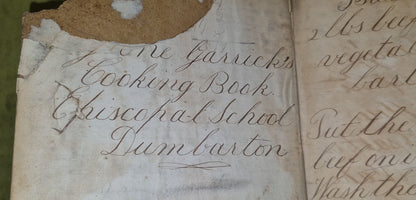 Garrick's
Cooking Book
Episcopal School
Dumbarton
2 lbs
vegeta
bar
Put the
beef on
Wash the